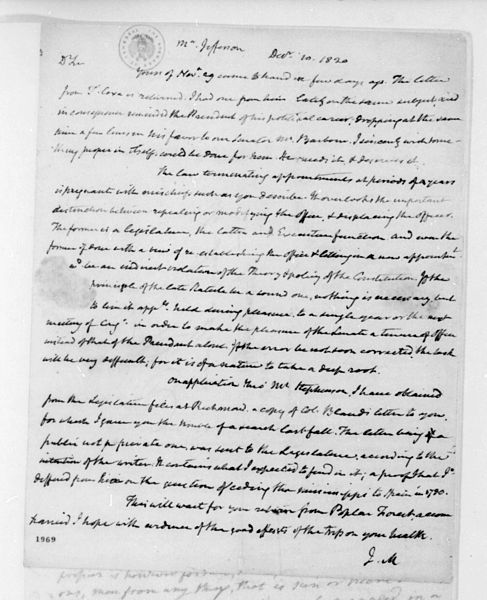 Mr. Jefferson Decr. 10. 1820
Dr Sir
Yours of Novr. 29 came to hand a few days ago. The letter
from T. Coxe is returned. I had one from him lately on the same subject and
in consequence reminded the President of his political career; dropping at the same
time a few lines in his favor to our Senator Mr. Barbour. I sincerely wish some-
thing proper in itself could be done for him. He needs it & deserves it.
The law terminating appointments at periods of 4 years
is pregnant with mischiefs such as you describe. It overlooks the important
distinction between repealing or modifying the office, & displacing the officer.
The former is a legislative, the latter an Executive function and even the
former if done with a view of re-establishing the office & letting in a new appointmt.
wd. be an indirect violation of the Theory & policy of the Constitution. If the
principle of the late Statute be a sound one, nothing is necessary but
to limit appts. held during pleasure, to a single year or the next
meeting of Congs. in order to make the pleasure of the Senate a tenure of office
instead of that of the President alone. If the error be not soon corrected, the task
will be very difficult; for it is of a nature to take a deep root.
On application thro' Mr Stephenson, I have obtained
from the Legislative files at Richmond, a copy of Col: Bland's letter to you,
for which I gave you the trouble of a search last fall. The letter being a
public not a private one, was sent to the Legislature, according to the
intention of the writer. It contains what I expected to find in it; a proof that I
differed from him on the question of ceding the Mississippi to Spain in 1780.
This will wait for your return from Poplar Forest, accom-
panied I hope with evidence of the good effects of the trip on your health.
J. M
1969